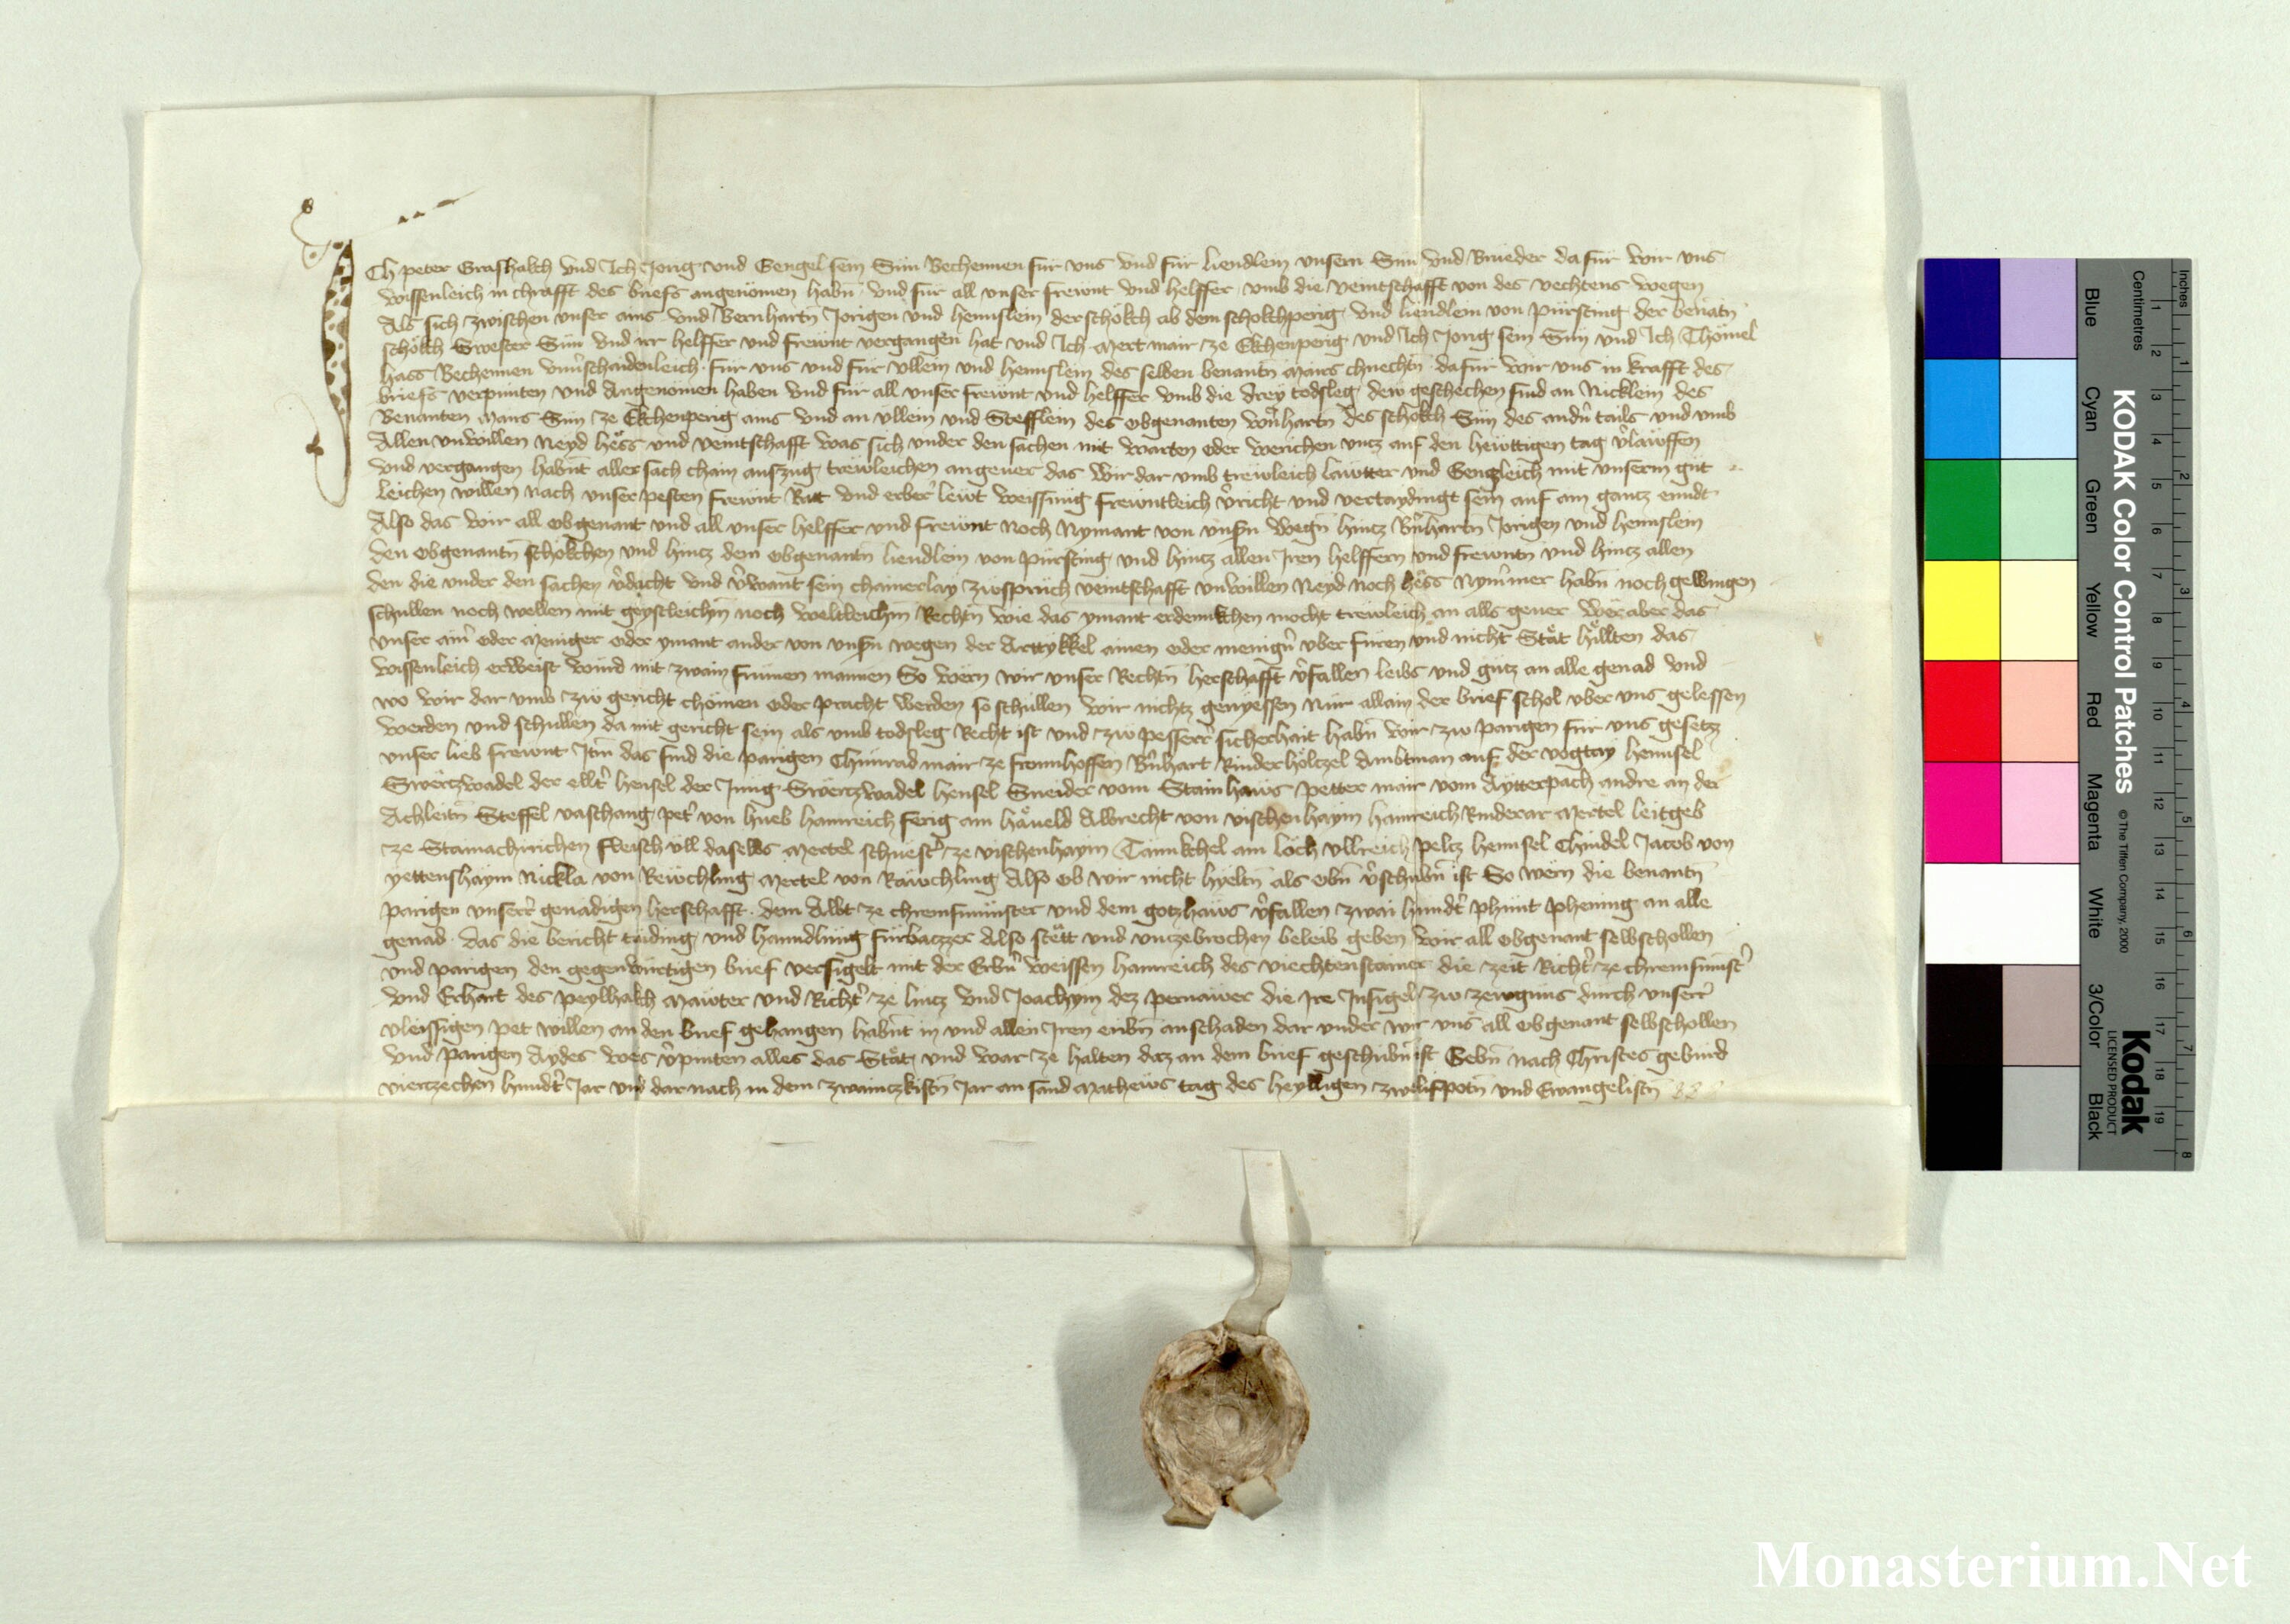 Ich peter Grashakch vnd Ich Jorig vnd Gengel sein Sün Bechennen für vns vnd für liendlein vnsern Sün vnd Brüeder da für wir vns
wissenleich in chrafft des briefs angenömen habn̄ vnd für all vnser frewnt vnd helffer vmb die veintschafft von des vechtens wegen
Als sich zwischen vnser ains vnd Bernhartn̄ Jorigen vnd hennslein der schökch ab dem schokchperig vnd liendlein von pürsting der benātn̄
schökch Swester Sün vnd irr helffer vnd frewnt vergangen hat vnd Ich Mert mair ze Ekchenperig vnd Ich Jorig sein Sün vnd Ich Thömel
hass Bechennen vnu̇schaidenleich für vns vnd für vllein vnd hennslein des selben benantn̄ Mairs chnechtn̄ dafür wir vns in krafft des
briefs verpunten vnd Angenömen haben vnd für all vnser frewnt vnd helffer vmb die drey todsleg dew geschechen sind an Nicklein des
Benanten Mairs Sün ze Ekchenperig ains vnd an vllein vnd Stefflein des obgenanten w̄nhartn̄ des schökch Sün des andn̄ tails vnd vmb
Allen vnwillen Neyd hëss vnd veintschafft was sich vnder den sachen mit warten oder werichen vncz auf den hewttigen tag v̇lawffen
vnd vergangen habnt aller sach chain auszug trewleichen angeuer das wir dar vmb trewleich lawtter vnd Genczleich mit vnserm güt
leichen willen nach vnser pesten frewnt Ratt vnd erber̄ lewt weissung frewntleich v̇richt vnd vertaydingt sein auf ain gantz enndt
Also das wir all obgenant vnd all vnser helffer vnd frewnt Noch Nymant von vnsn̄ wegn̄ hincz Bn̄hartn̄ Jorigen vnd hennslein
den obgenantn̄ schökchen vnd hincz dem obgenantn̄ liendlein von pürsting vnd hincz allen Iren helffern vnd frewntn vnd hincz allen
den die vnder den sachen v̇dächt vnd v̇want sein chainerlay zwspruch veintschafft vnwillen Neyd noch hëss Nym̄mer habn̄ noch gebingen
schullen noch wellen mit geystleichn̄ noch weltleichn̄ Rechtn̄ wie das ymant erdennkchen möcht trewleich an alls geuer Wer aber das
vnser ain̄ oder Meniger oder ymant ander von vnsn̄ wegen der Arttykkel ainen oder menign̄ vber füren vnd nicht Stät hällten das
wissenleich erweist wurd mit zwain frümen mannen So wern wir vnser Rechtn̄ herschafft v̇fallen leibs vnd gutz an alle genad vnd
wo wir dar vmb zw gericht chömen oder pracht werden so schullen wir nichtz genyessen Nür allain der brief schol vber vns gelessen
werden vnd schullen da mit gericht sein als vmb todsleg Recht ist vnd zw pesserr̄ sicherhait habn̄ wir zw parigen für vns gesetz
vnser lieb frewnt Itm̄ das sind die parigen Chünrad mair ze fronnhoffen Bn̄hart Rinderhöltzel Ambtman auf der vogtay hennsel
Swertzwadel der ellt̄ hensel der Jung Swertzwadel hensel Sneider vom Stainhaws petter mair vom Aytterpach andre an der
Achleitn̄ Steffel vaschang pet̄ von hueb hainreich ferig am häueld Albrecht von vischenhaym hainreich Rinderar Mertel leitgeb
ze Stainachirichen fleisch vll daselbs Mertel schuest̄ ze vischenhaym Tannkchel am löch vllreich peltz hennsel Chindel Jacob von
yettenshaym Nickla von Rewchling Mertel von Rawchling Also ob wir nicht hyeltn̄ als obn̄ v̇schribn̄ ist So wern die benantn̄
parigen vnserr̄ genadigen herschafft dem Albt ze chremsmünster vnd dem gotzhaws v̇fallen zwai hundt̄ phunt phening an alle
genad das die bericht taiding vnd hanndlung fürbaczzer Also stätt vnd vnczebrochen beleib geben wir all obgenant selbschollen
vnd parigen den gegenwürtigen brief versigelt mit der Erbn̄ weissen hainreich des viechtenstainer die zeit Richt̄ ze chremsmünst̄
vnd Erhart des peyslhakch Mawter vnd Richt̄ ze lincz vnd Joachym dez pernawer die Ire Insigel zw zewgnus durch vnserr̄
vleissigen pet willen an den brief gehangen habnt in vnd allen Iren eribn̄ anschaden dar vnder wir vns all obgenant selbschollen
vnd parigen Aydes wes v̇pinten alles das Stät vnd war ze halten daz an dem brief geschribn̄ ist Gebn̄ nach Christes gebürd
vierzechen hundt̄ Jar vnd dar nach in dem zwainczkistn̄ Jar an sand Matheus tag des heyligen zwelifpotn̄ vnd Ewangelistn̄
KODAK Color Control Patches
© The Tiffen Company, 2000
Kodak
LICENSED PRODUCT
Inches
Centimetres
Blue
Cyan
Green
Yellow
Red
Magenta
White
3/Color
Black
1 2 3 4 5 6 7 8 9 10 11 12 13 14 15 16 17 18 19
1 2 3 4 5 6 7 8
Monasterium.Net